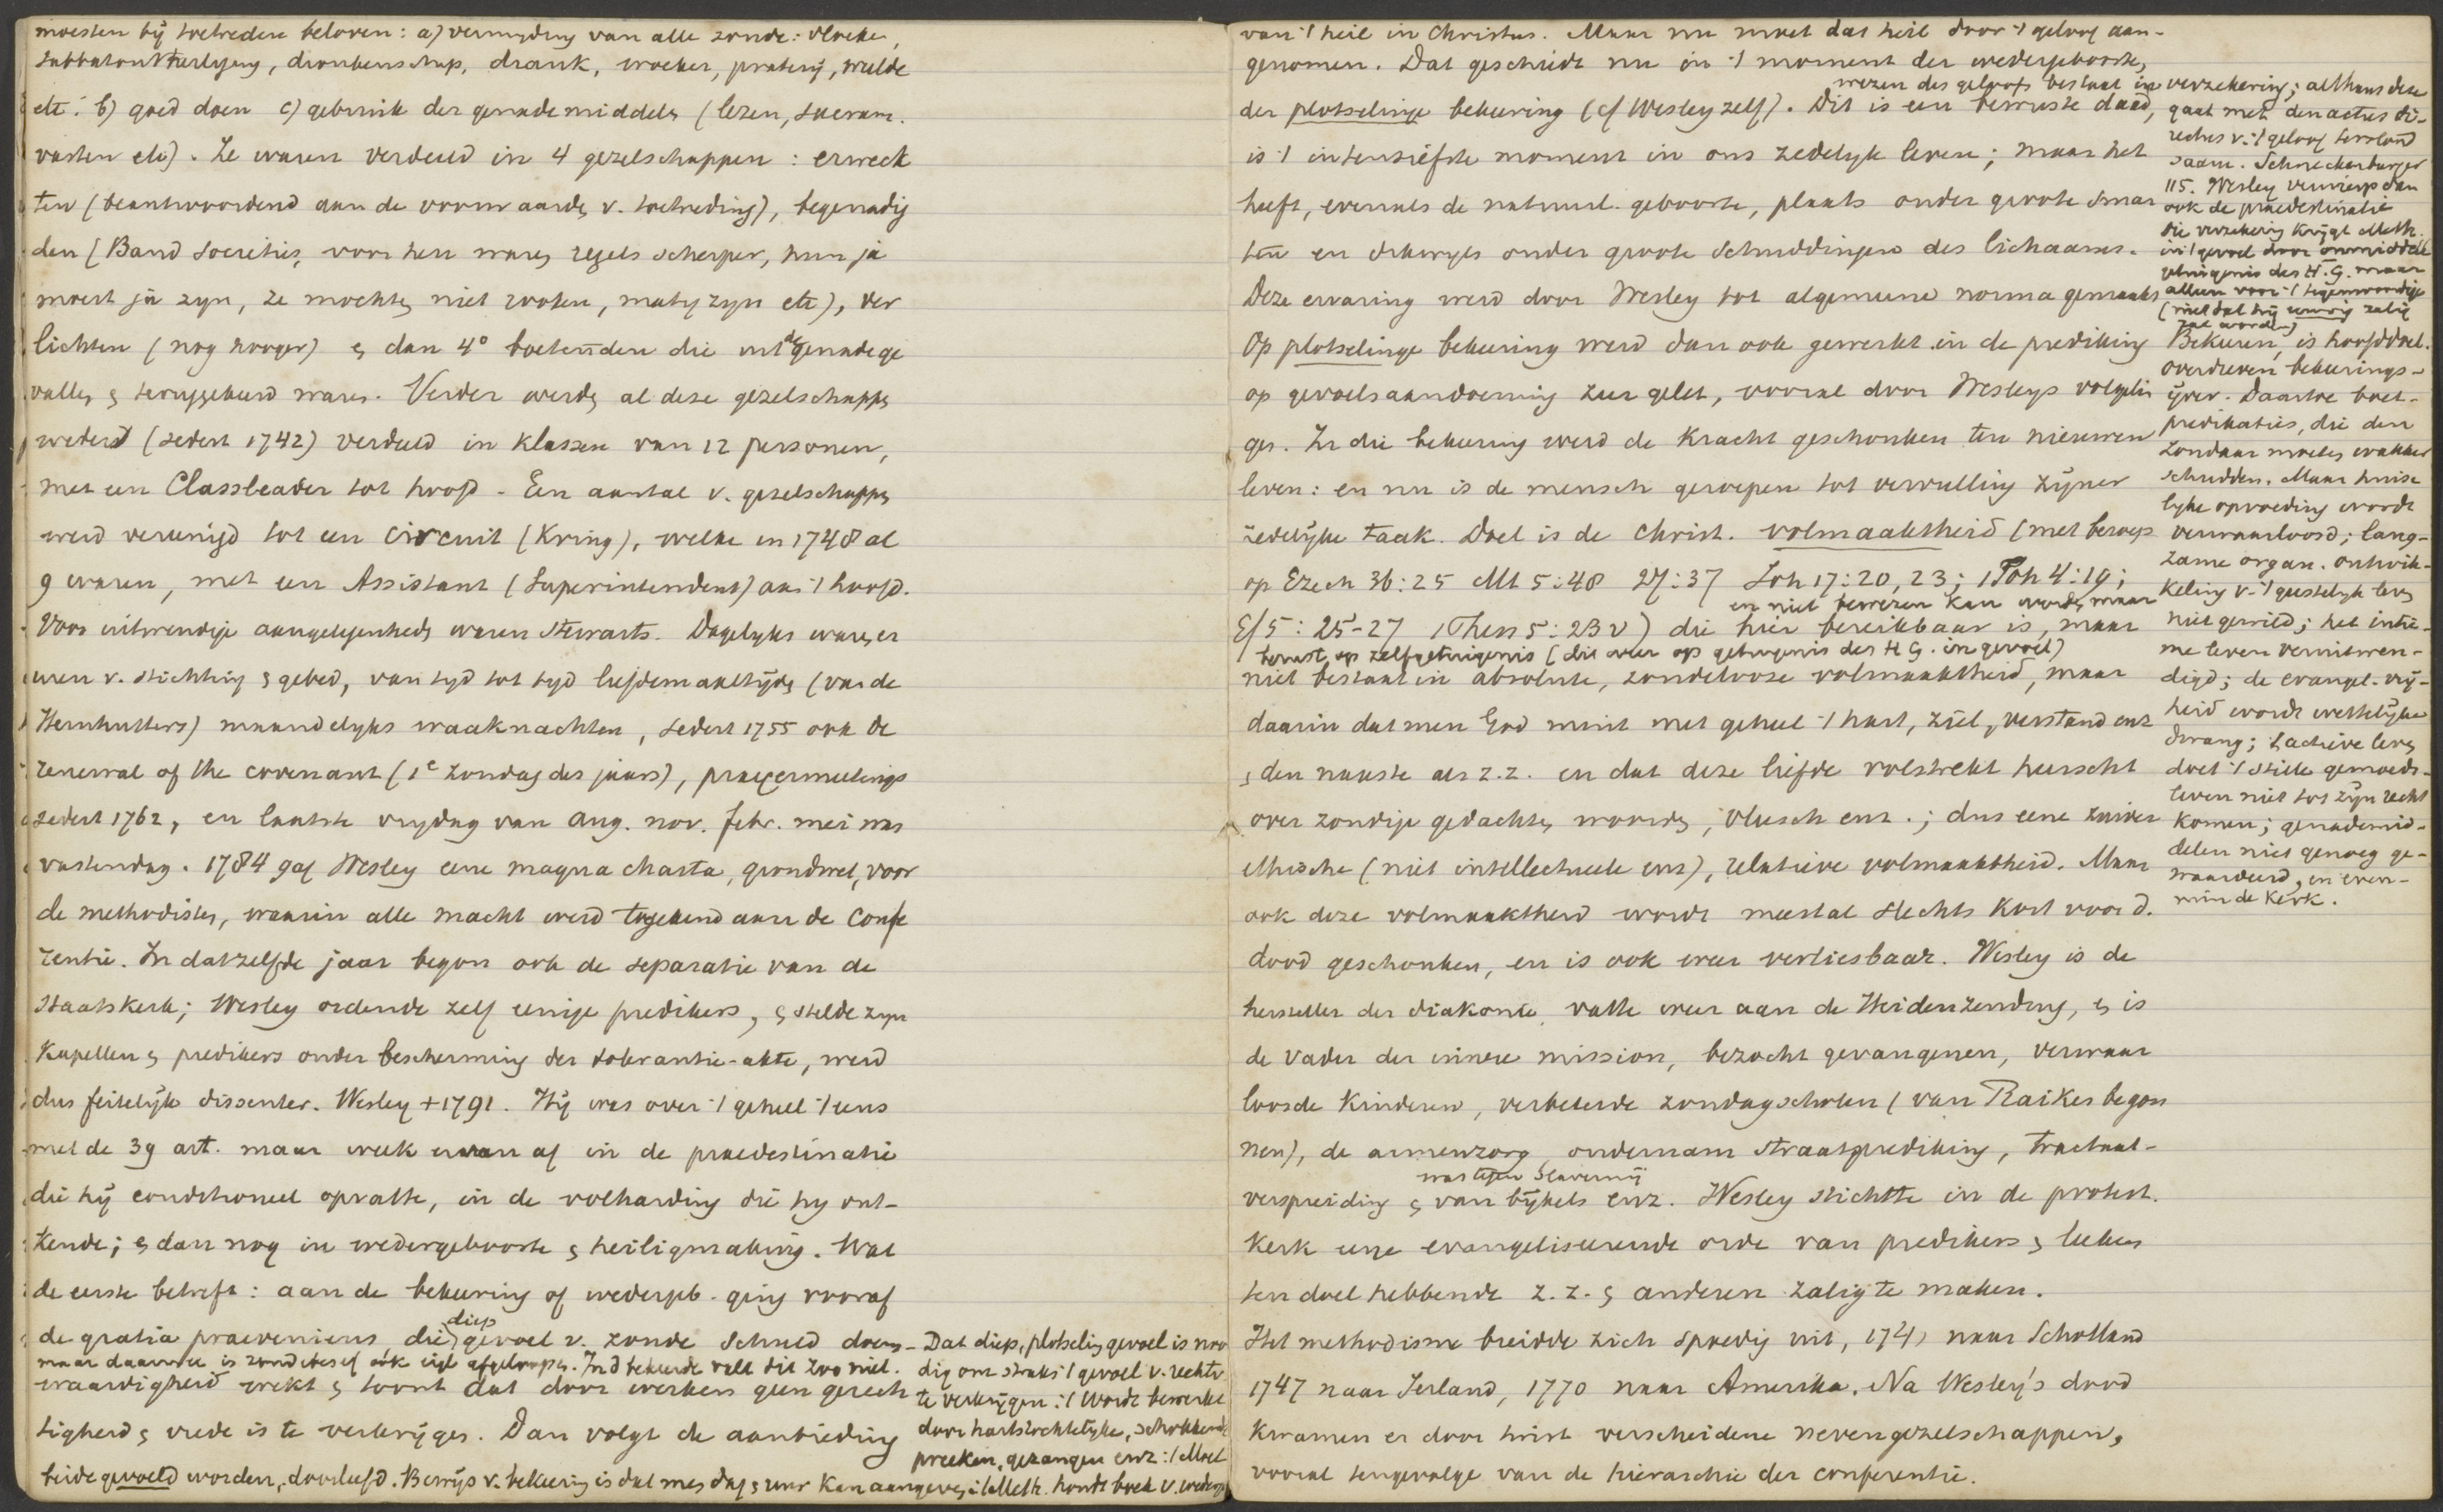 moesten bij toetreden beloven: a) vermyding van alle zonde: vloeken,
sabbatontheiliging, dronkenschap, drank, woeker, praterij, weelde
etc. b) goed doen c) gebruik der genademiddelen (lezen, sacram.
vasten etc). Ze waren verdeeld in 4 gezelschappen: erweck
ten (beantwoordend aan de voorwaarden v. toetreding), begenadig
den (Band Societies, voor hen waren regels scherper, hun ja
moest ja zyn, ze mochten niet rooken, matig zyn etc), ver
lichten (nog hooger) en dan 4° boetenden die uit de genade ge
vallen en teruggekeerd waren. Verder werden al deze gezelschappen
weder (sedert 1742) verdeeld in klassen van 12 personen,
met een Classleader tot hoofd. Een aantal v. gezelschappen
werd vereenigd tot een circuit (Kring), welke in 1748 al
9 waren, met een Assistant (Superintendent) aan 't hoofd.
Voor uitwendige aangelegenheden waren Stewarts. Dagelyks waren er
uren v. stichting en gebed, van tyd tot tyd liefdemaaltijden (van de
Hernhutters) maandelyks waaknachten, sedert 1755 ook de
renewal of the covenant (1e zondag des jaars), prayermeetings
sedert 1762, en laatste vrydag van Aug. nov. febr. mei was
vastendag. 1784 gaf Wesley eene magna charta, grondwet, voor
de methodisten, waarin alle macht werd toegekend aan de Confe
rentie. In datzelfde jaar begon ook de separatie van de
Staatskerk; Wesley ordende zelf eenige predikers, en stelde zyn
Kapellen en predikers onder bescherming der tolerantie-akte, werd
dus feitelijk dissenter. Wesley + 1791. Hij was over 't geheel 't eens
met de 39 art. maar week ervan af in de praedestinatie
die hij conditioneel opvatte, in de volharding die hy ont-
kende; en dan nog in wedergeboorte en heiligmaking. Wat
de eerste betreft: aan de bekeering of wedergeb. ging vooraf
diep
de gratia praeveniens die gevoel v. zonde Schuld doem-
maar daarmee is zondebesef ook afgeloopen. In d bekeerde valt dit zoo niet.
waardigheid wekt en toont dat door werken geen gerech
tigheid en vrede is te verkrijgen. Dan volgt de aanbieding
beide gevoeld worden, doorleefd. Bewijs v. bekeering is dat men dag en uur kan aangeven; 't Meth. houdt boek v. wederge
Dat diep, plotseling gevoel is noo
dig om straks 't gevoel v. rechtv.
te verkrijgen: 't Wordt bewerkt
door hartstochtelijke, schokkende
preeken, gezangen enz: 't Moet
van 't heil in Christus. Maar nu moet dat heil door 't geloof aan-
genomen. Dat geschiedt nu in 't moment der wedergeboorte,
wezen des geloofs bestaat in verzekering; althans deze
der plotselinge bekeering (cf Wesley zelf). Dit is een bewuste daad,
is 't intensiefste moment in ons zedelyk leven; maar het
heeft, evenals de natuurl. geboorte, plaats onder groote smar
ten en dikwyls onder groote schuddingen des lichaams.
Deze ervaring werd door Wesley tot algemeene norma gemaakt
Op plotselinge bekeering werd dan ook gewerkt in de prediking
op gevoelsaandoening zeer gelet, vooral door Wesleys volgelin
gen. In die bekeering werd de Kracht geschonken ten nieuwen
leven: en nu is de mensch geroepen tot vervulling zijner
zedelijke taak. Doel is de Christ. volmaaktheid (met beroep
op Ezech 36:25 Mt 5:48 27:37 Joh 17:20, 23; 1 Joh 4:19;
en niet bewezen kan worden, maar
Ef 5:25-27 1 Thess 5:23 v) die hier bereikbaar is, maar
berust op zelfgetuigenis (die weer op getuigenis des H G. in gevoel)
niet bestaat in absolute, zondelooze volmaaktheid, maar
daarin dat men God mint met geheel 't hart, ziel, verstand enz
en den naaste als z.z. en dat deze liefde volstrekt heerscht
over zondige gedachten, woorden, vleesch enz.; dus eene zuiver
ethische (niet intellectueele enz), relatieve volmaaktheid. Maar
ook deze volmaaktheid wordt meestal slechts kort voor d.
dood geschonken, en is ook weer verliesbaar. Wesley is de
hersteller der diakonie, vatte weer aan de Heidenzending, en is
de vader der innere mission, bezocht gevangenen, verwaar
loosde Kinderen, verbeterde zondagscholen (van Raikes begon
nen), de armenzorg, ondernam straatprediking, tractaat-
was tegen Slavernij
verspreiding en van bijbels enz. Wesley stichtte in de protest.
Kerk eene evangeliseerende orde van predikers en leeken
ten doel hebbende z.z. en anderen zalig te maken.
Het methodisme breidde zich spoedig uit, 1741 naar Schotland
1747 naar Ierland, 1770 naar Amerika. Na Wesley's dood
kwamen er door twist verscheidene nevengezelschappen,
vooral tengevolge van de hierarchie der conferentie.
gaat met den actus di-
rectus v. 't geloof terstond
saam. Schneckenburger
115. Wesley verwierp dan
ook de praedestinatie
die verzekering krijgt Meth.
in 't gevoel door onmiddell
getuigenis des H. G. maar
alleen voor 't tegenwoordige
(niet dat hij eeuwig zalig
zal worden)
Bekeeren, is hoofddoel.
overdreven bekeerings-
ijver. Daartoe boet-
predikaties, die den
zondaar moeten wakker
schudden. Maar huise
lyke opvoeding wordt
verwaarloosd; lang-
zame organ. ontwik-
keling v. 't geestelyk leven
niet gewild; het intie-
me leven veruitwen-
digd; de evangel. vrij-
heid wordt wettelijke
dwang; 't actieve leven
doet 't stille gemoeds-
leven niet tot zijn recht
komen; genademid-
delen niet genoeg ge-
waardeerd, en even-
min de Kerk.